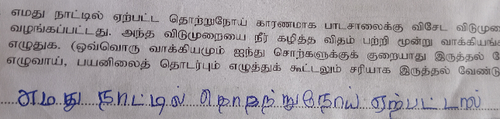 எமது நாட்டில் ஏற்பட்ட தொற்றுநோய் காரணமாக பாடசாலைக்கு விசேட விடுமு
வழங்கப்பட்டது. அந்த விடுமுறையை நீர் கழித்த விதம் பற்றி மூன்று வாக்கியங்க
எழுதுக. (ஒவ்வொரு வாக்கியமும் ஐந்து சொற்களுக்குக் குறையாது இருத்தல்
எழுவாய், பயனிலைத் தொடர்பும் எழுத்துக் கூட்டலும் சரியாக இருத்தல் வேண்டு
எமது நாட்டில் தொற்று நோய் ஏற்பட்டால்